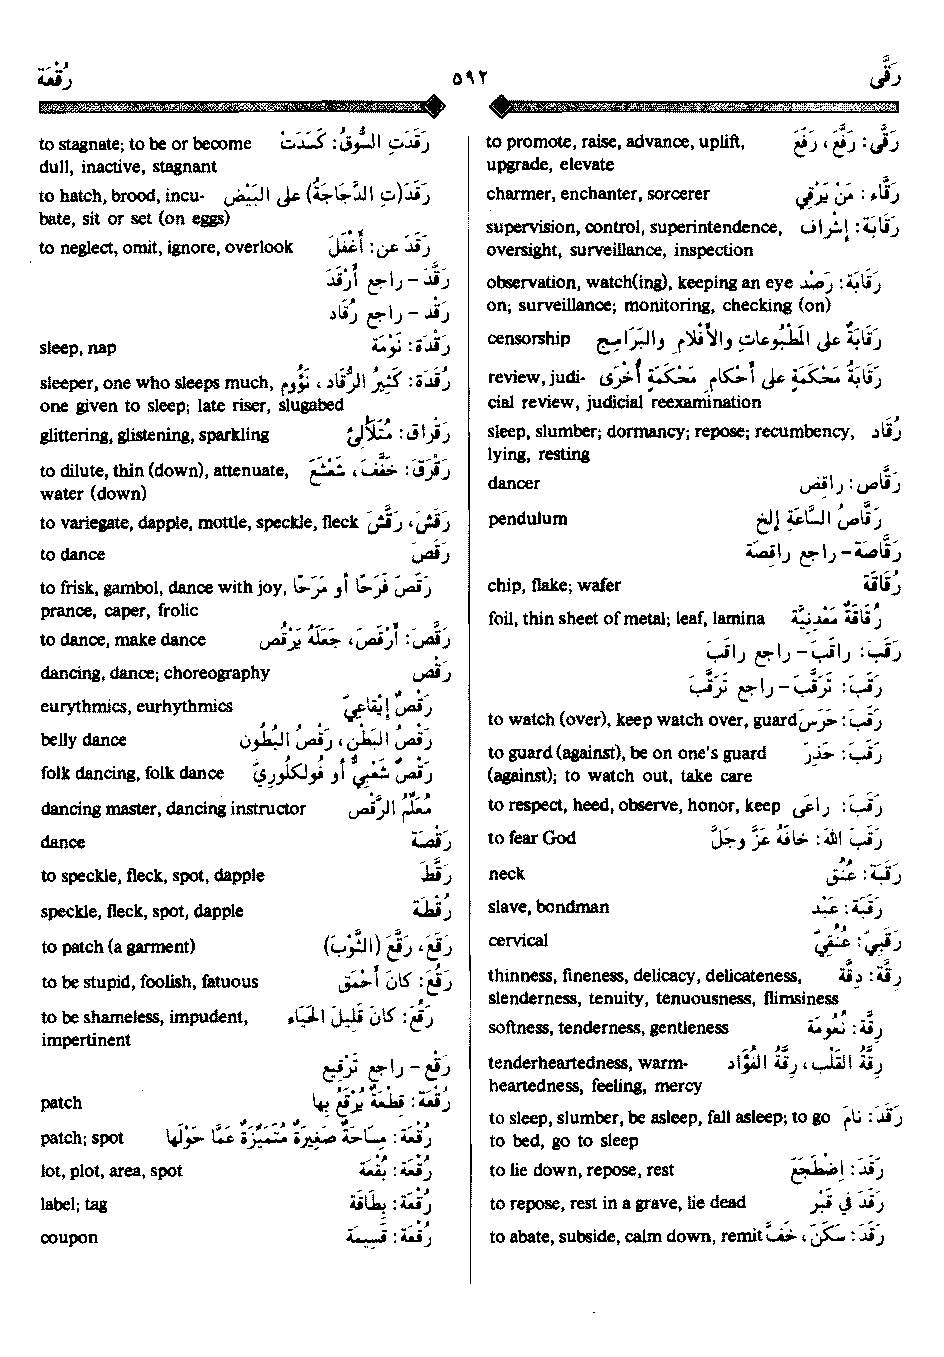 رَقَّى
٥٩٢
رُقْعَة
رَقَّى: رَفَّعَ، رَفَعَ to promote, raise, advance, uplift,
upgrade, elevate
رَقَّاء: مَنْ يَرْقِي charmer, enchanter, sorcerer
رَقَابَة: إشْرَاف supervision, control, superintendence,
oversight, surveillance, inspection
رَقَابَة: رَصْد observation, watch(ing), keeping an eye
on; surveillance; monitoring, checking (on)
رَقَابَةٌ على المَطْبُوعاتِ والأَفْلامِ والبَرَامِج censorship
رَقَابَةُ مَحْكَمَةٍ على أَحْكامِ مَحْكَمَةٍ أُخْرَى review, judi-
cial review, judicial reexamination
رُقَاد sleep, slumber; dormancy; repose; recumbency,
lying, resting
رَقَّاص: راقِص dancer
رَقَّاصُ السَّاعَةِ إلخ pendulum
رَقَّاصَة - راجع راقِصَة
رُقَاقَة chip, flake; wafer
رُقَاقَةٌ مَعْدِنِيَّة foil, thin sheet of metal; leaf, lamina
رَقَبَ: راقَبَ - راجع راقَبَ
رَقَبَ: تَرَقَّبَ - راجع تَرَقَّبَ
رَقَبَ: حَرَسَ to watch (over), keep watch over, guard
رَقَبَ: حَذِرَ to guard (against), be on one's guard
(against); to watch out, take care
رَقَبَ: راعَى to respect, heed, observe, honor, keep
رَقَبَ اللهَ: خَافَهُ عَزَّ وجَلَّ to fear God
رَقَبَة: عُنُق neck
رَقَبَة: عَبْد slave, bondman
رَقَبِيّ: عُنُقِيّ cervical
رِقَّة: دِقَّة thinness, fineness, delicacy, delicateness,
slenderness, tenuity, tenuousness, flimsiness
رِقَّة: نُعُومَة softness, tenderness, gentleness
رِقَّةُ القَلْب، رِقَّةُ الفُؤَاد tenderheartedness, warm-
heartedness, feeling, mercy
رَقَدَ: نامَ to sleep, slumber, be asleep, fall asleep; to go
to bed, go to sleep
رَقَدَ: اِضْطَجَعَ to lie down, repose, rest
رَقَدَ في قَبْرٍ to repose, rest in a grave, lie dead
رَقَدَ: سَكَنَ، خَفَّ to abate, subside, calm down, remit
رَقَدَتِ السُّوقُ: كَسَدَتْ to stagnate; to be or become
dull, inactive, stagnant
رَقَدَ(تِ الدَّجَاجَةُ) على البَيْض to hatch, brood, incu-
bate, sit or set (on eggs)
رَقَدَ عن: أَغْفَلَ to neglect, omit, ignore, overlook
رَقَّدَ - راجع أَرْقَدَ
رَقْد - راجع رُقَاد
رَقْدَة: نَوْمَة sleep, nap
رُقَدَة: كَثِيرُ الرُّقَاد، نَؤُوم sleeper, one who sleeps much,
one given to sleep; late riser, slugabed
رَقْرَاق: مُتَلَأْلِئ glittering, glistening, sparkling
رَقْرَقَ: خَفَّفَ، شَعْشَعَ to dilute, thin (down), attenuate,
water (down)
رَقَشَ، رَقَّشَ to variegate, dapple, mottle, speckle, fleck
رَقَصَ to dance
رَقَصَ فَرَحًا أو مَرَحًا to frisk, gambol, dance with joy,
prance, caper, frolic
رَقَّصَ: أَرْقَصَ، جَعَلَهُ يَرْقُص to dance, make dance
رَقْص dancing, dance; choreography
رَقْصٌ إيْقَاعِيّ eurythmics, eurhythmics
رَقْصُ البَطْنِ، رَقْصُ البُطُون belly dance
رَقْصٌ شَعْبِيٌّ أو فُولْكلُورِيّ folk dancing, folk dance
مُعَلِّمُ الرَّقْص dancing master, dancing instructor
رَقْصَة dance
رَقَّطَ to speckle, fleck, spot, dapple
رُقْطَة speckle, fleck, spot, dapple
رَقَعَ، رَقَّعَ (الثَّوْبَ) to patch (a garment)
رَقُعَ: كانَ أَحْمَق to be stupid, foolish, fatuous
رَقُعَ: كانَ قَلِيلَ الحَيَاء to be shameless, impudent,
impertinent
رَقْع - راجع تَرْقِيع
رُقْعَة: قِطْعَةٌ يُرْقَعُ بِها patch
رُقْعَة: مِسَاحَةٌ صَغِيرَةٌ مُتَمَيِّزَةٌ عَمَّا حَوْلَها patch; spot
رُقْعَة: بُقْعَة lot, plot, area, spot
رُقْعَة: بِطَاقَة label; tag
رُقْعَة: قَسِيمَة coupon